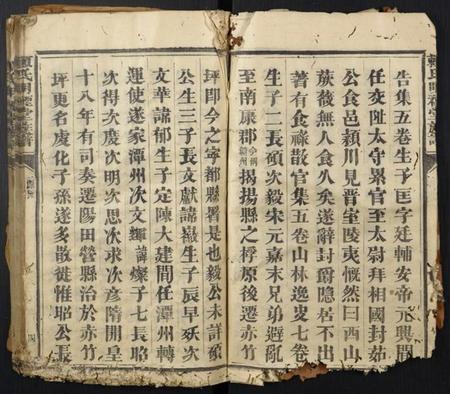 告集五卷生子匡字廷輔安帝元興間
任交阯太守累官至太尉拜相國封姑
公食邑潁川見晋室陵夷慨然曰西山
蕨薇無人食久矣遂辭封爵隱居不出
著有食祿散官集五卷山林逸叟七卷
生子二長碩次毅宋元嘉末兄弟避亂
至南康郡今所謂贛州揭揚縣之桴原後遷赤竹
坪即今之寧都縣署是也毅公未詳碩
公生三子長文獻諱嶽生子辰早殀次
文華諱郁生子定陳大建間任潭州轉
運使遂家潭州次文輝諱燦子七長昭
次得次慶次明次思次求次彦隋開皇
十八年有司奏遷陽田營縣治於赤竹
坪更省虔化子孫遂多散徙惟昭公長
賴氏明禋堂族譜